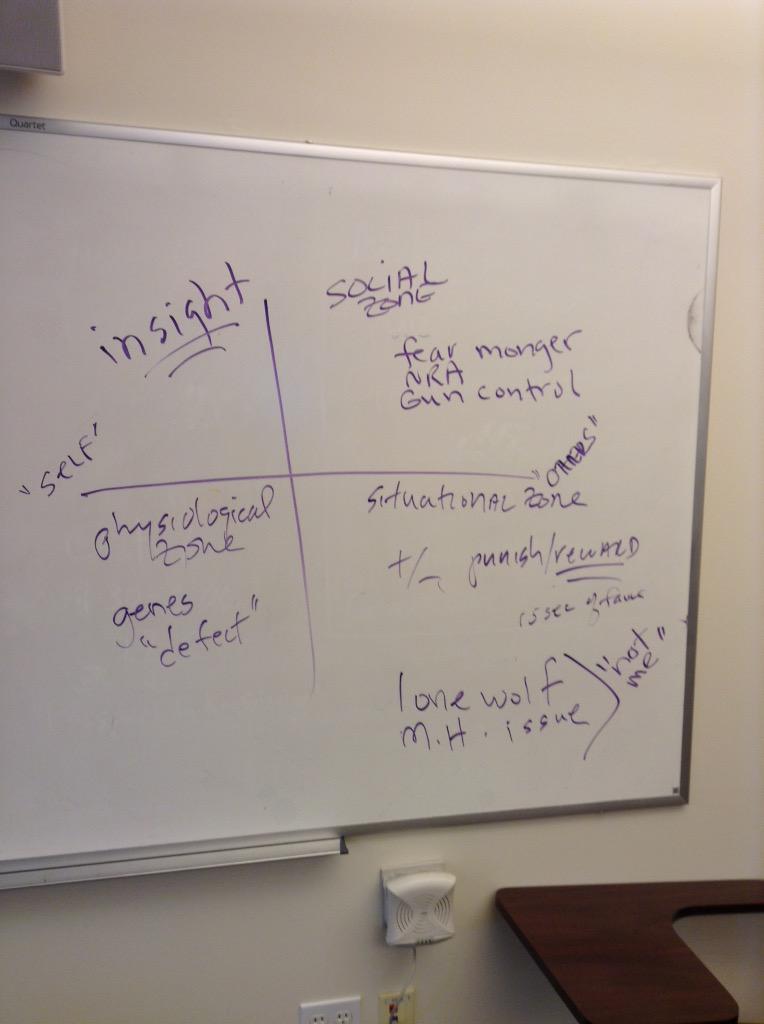 Quartet
insight
SOCIAL
ZONE
fear monger
NRA
Gun control
"self"
"OTHERS"
physiological
zone
genes
"defect"
situational zone
+/- punish/reward
15 sec of fame
lone wolf
M.H. issue
"not
me"